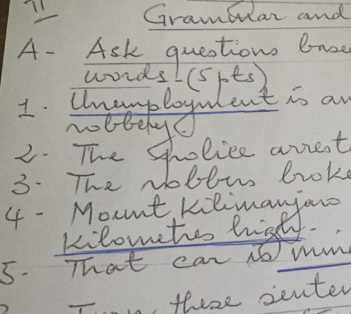 II Grammar and
A- Ask questions base
words - (5 pts)
1. Unemployment is an
robbery
2- The police arrest
3- The robbers broke
4- Mount Kilimanjaro
Kilometres high.
5- That car is min
Turn these senten